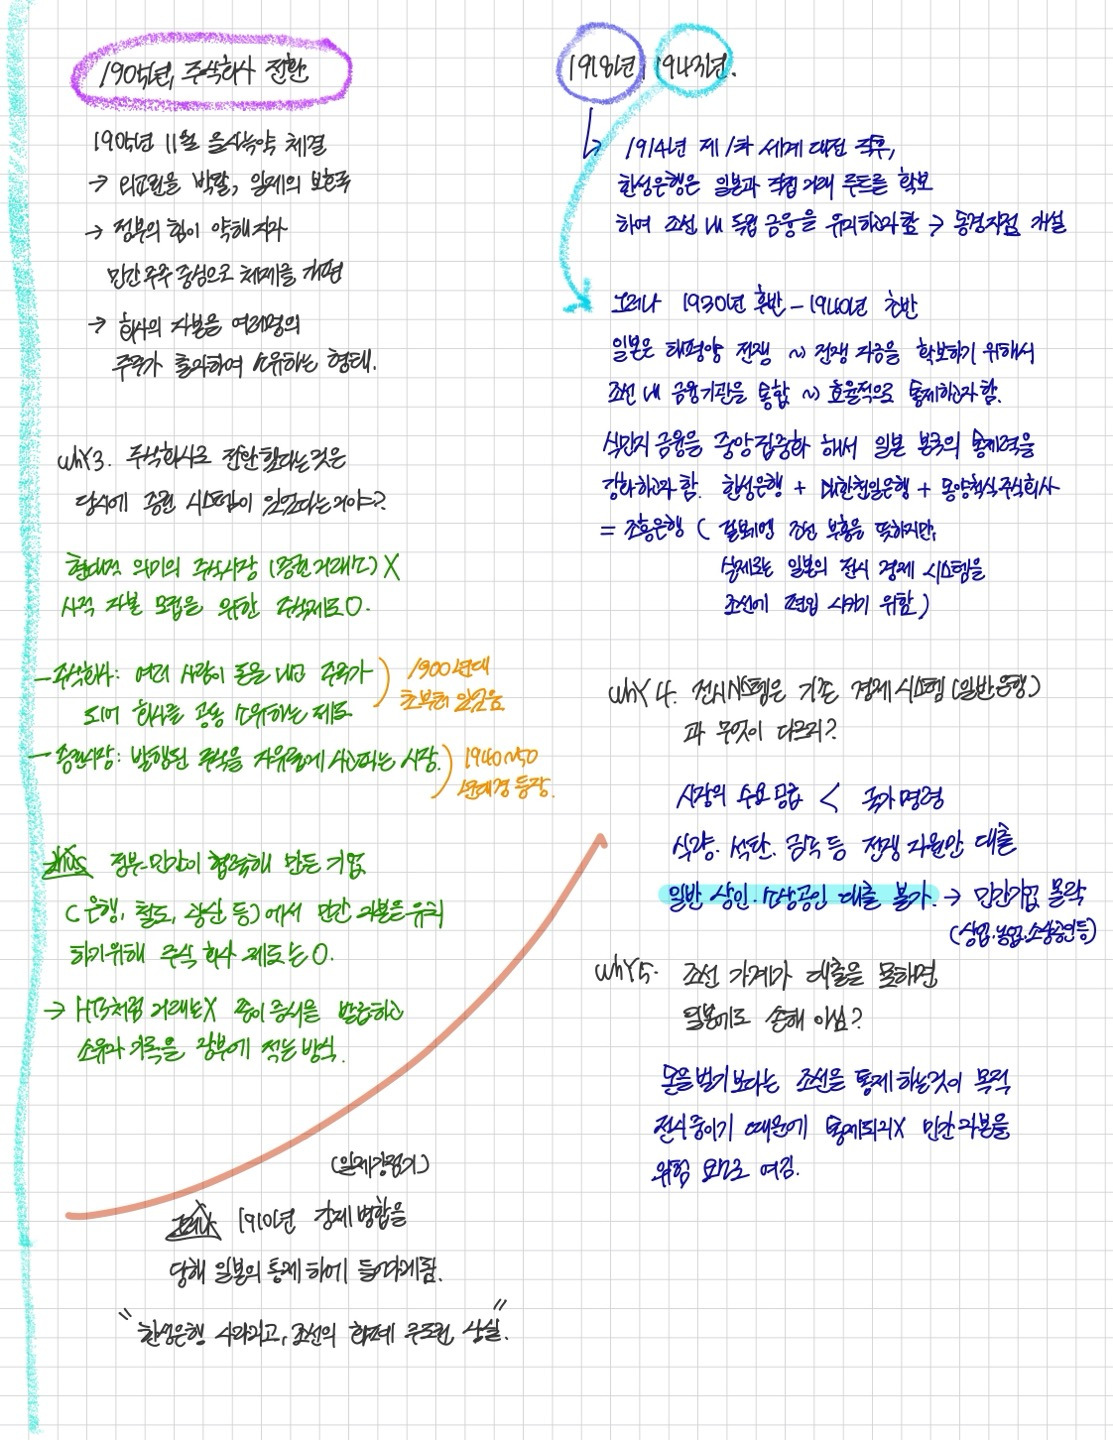 1905년, 주식회사 전환
1905년 11월 을사늑약 체결
→ 외교권을 박탈, 일제의 보호국
→ 정부의 힘이 약해지자
민간주주 중심으로 체제를 개편
→ 회사의 자본을 여러명의
주주가 출자하여 소유하는 형태.
why3. 주식회사로 전환했다는것은
당시에 증권 시스템이 있었다는거야?
현대적 의미의 주식시장 (증권거래소) X
사적 자본 모집을 위한 주식제도 O.
- 주식회사: 여러 사람이 돈을 내고 주주가
되어 회사를 공동 소유하는 제도
1900년대
초부터 있었음
- 증권시장: 발행된 주식을 자유롭게 사고파는 시장.
1940~50
년대경 등장.
정부-민간이 협력해 만든 기업
(은행, 철도, 광산 등)에서 민간 자본을 유치
하기위해 주식 회사 제도는 O.
→ HTS처럼 거래는 X 종이 증서를 발급하고
소유자 기록을 장부에 적는 방식.
(일제강점기)
그러나 1910년 강제 병합을
당해 일본의 통제 하에 들어가게됨.
"한성은행 사라지고, 조선의 화폐 주도권 상실."
1918년, 1943년.
↳ 1914년 제 1차 세계 대전 직후,
한성은행은 일본과 직접 거래 루트를 확보
하여 조선 내 독립 금융을 유지하고자 함 → 동경지점 개설
그러나 1930년 후반 - 1940년 초반
일본은 태평양 전쟁 ~> 전쟁 자금을 확보하기 위해서
조선 내 금융기관을 통합 ~> 효율적으로 통제하고자 함.
식민지 금융을 중앙집중화 해서 일본 본국의 통제력을
강화하고자 함. 한성은행 + 대한천일은행 + 동양척식주식회사
= 조흥은행 ( 겉보기엔 조선 부흥을 뜻하지만,
실제로는 일본의 전시 경제 시스템을
조선에 편입 시키기 위함 )
why 4. 전시시스템은 기존 경제 시스템(일반은행)
과 무엇이 다르지?
시장의 수요 공급 < 국가 명령
식량. 석탄. 금속 등 전쟁 자원만 대출
일반 상인. 소상공인 대출 불가. → 민간기업 몰락
(상업.농업.소상공인등)
why5. 조선 가계가 대출을 못하면
일본에도 손해 아님?
돈을 벌기 보다는 조선을 통제하는것이 목적
전시 중이기 때문에 통제되지X 민간 자본을
위험 요소로 여김.